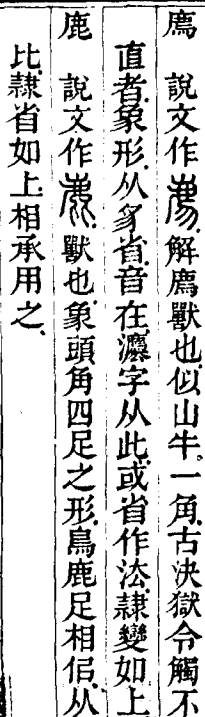 廌　說文作𢊁解廌獸也似山牛一角古決獄令觸不
直者象形从豸省音在灋字从此或省作法隸變如上
鹿　說文作鹿獸也象頭角四足之形鳥鹿足相佀从
比隸省如上相承用之